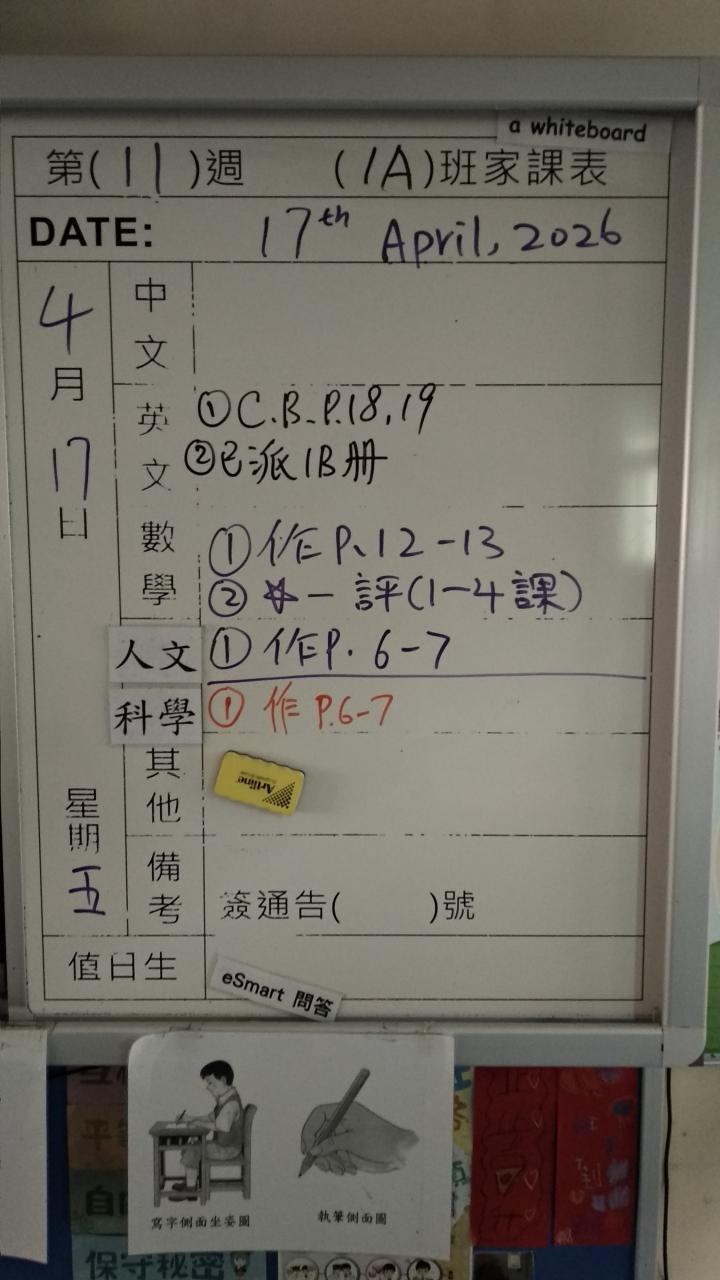 a whiteboard
第(11)週 (1A)班家課表
DATE: 17th April, 2026
4月17日
星期五
中文
英文
①C.B. P.18,19
②已派1B冊
數學
①作P.12-13
②一評(1-4課)
人文
①作P.6-7
科學
①作P.6-7
其他
Artline
備考
簽通告( )號
值日生
eSmart 問答
寫字側面坐姿圖
執筆側面圖
保守秘密